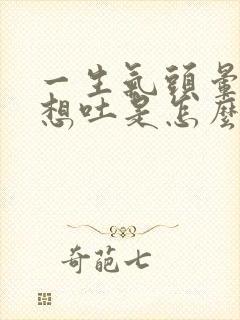 一生氣頭暈
想吐是怎麼
奇葩七